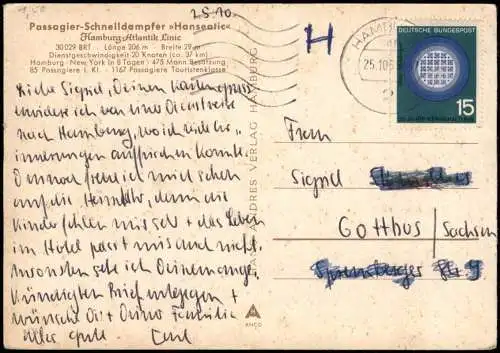 25.10.
Passagier-Schnelldampfer »Hanseatic«
Hamburg-Atlantik Linie
30029 BRT · Länge 206 m · Breite 29 m
Dienstgeschwindigkeit 20 Knoten (ca. 37 km)
Hamburg - New York in 8 Tagen · 475 Mann Besatzung
85 Passagiere I. Kl. · 1167 Passagiere Touristenklasse
Liebe Sigrid, Deinen Kartengruss
erwidere ich von einer Dienstreise
nach Hamburg, wo ich viele
innerungen auffrischen konnte.
Dennoch freu ich mich schon
auf die Heimfahrt, denn die
Kinder fehlen mir sehr + das Leben
im Hotel passt mir auch nicht.
Ansonsten sehe ich Deinem ange-
kündigten Brief entgegen +
wünsche Dir + Deiner Familie
alles Gute.
HANS ANDRES VERLAG HAMBURG
ANCO
H
HAMBURG
25.10.6
2
DEUTSCHE BUNDESPOST
15
Frau
Sigrid
Cottbus / Sachsen
Spremberger Str. 9